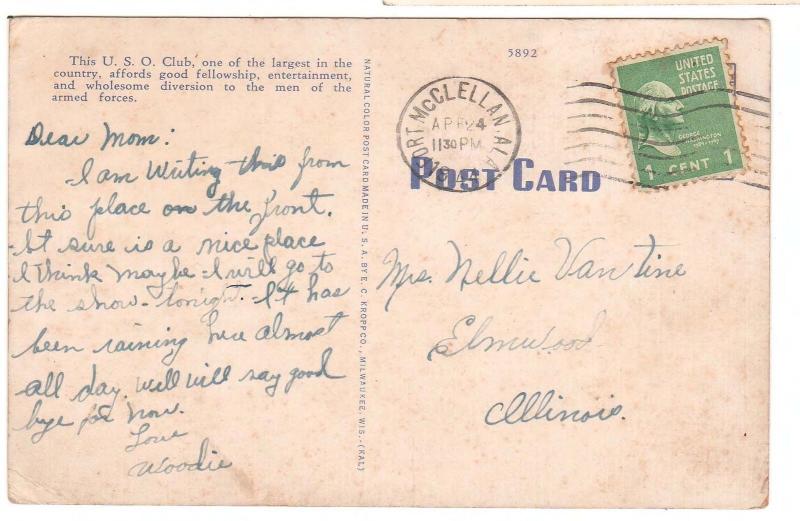 This U. S. O. Club, one of the largest in the
country, affords good fellowship, entertainment,
and wholesome diversion to the men of the
armed forces.
Dear Mom:
I am writing this from
this place on the front.
It sure is a nice place
I think maybe I will go to
the show tonight. It has
been raining here almost
all day. Well will say good
bye for now.
Love
Woodie
NATURAL COLOR POST CARD MADE IN U. S. A. BY E. C. KROPP CO., MILWAUKEE, WIS.-(KAL)
5892
FORT McCLELLAN, ALA.
APR 24
11 30 PM
UNITED
STATES
POSTAGE
GEORGE
WASHINGTON
1 CENT 1
POST CARD
Mrs. Nellie Van Tine
Elmwood
Illinois.